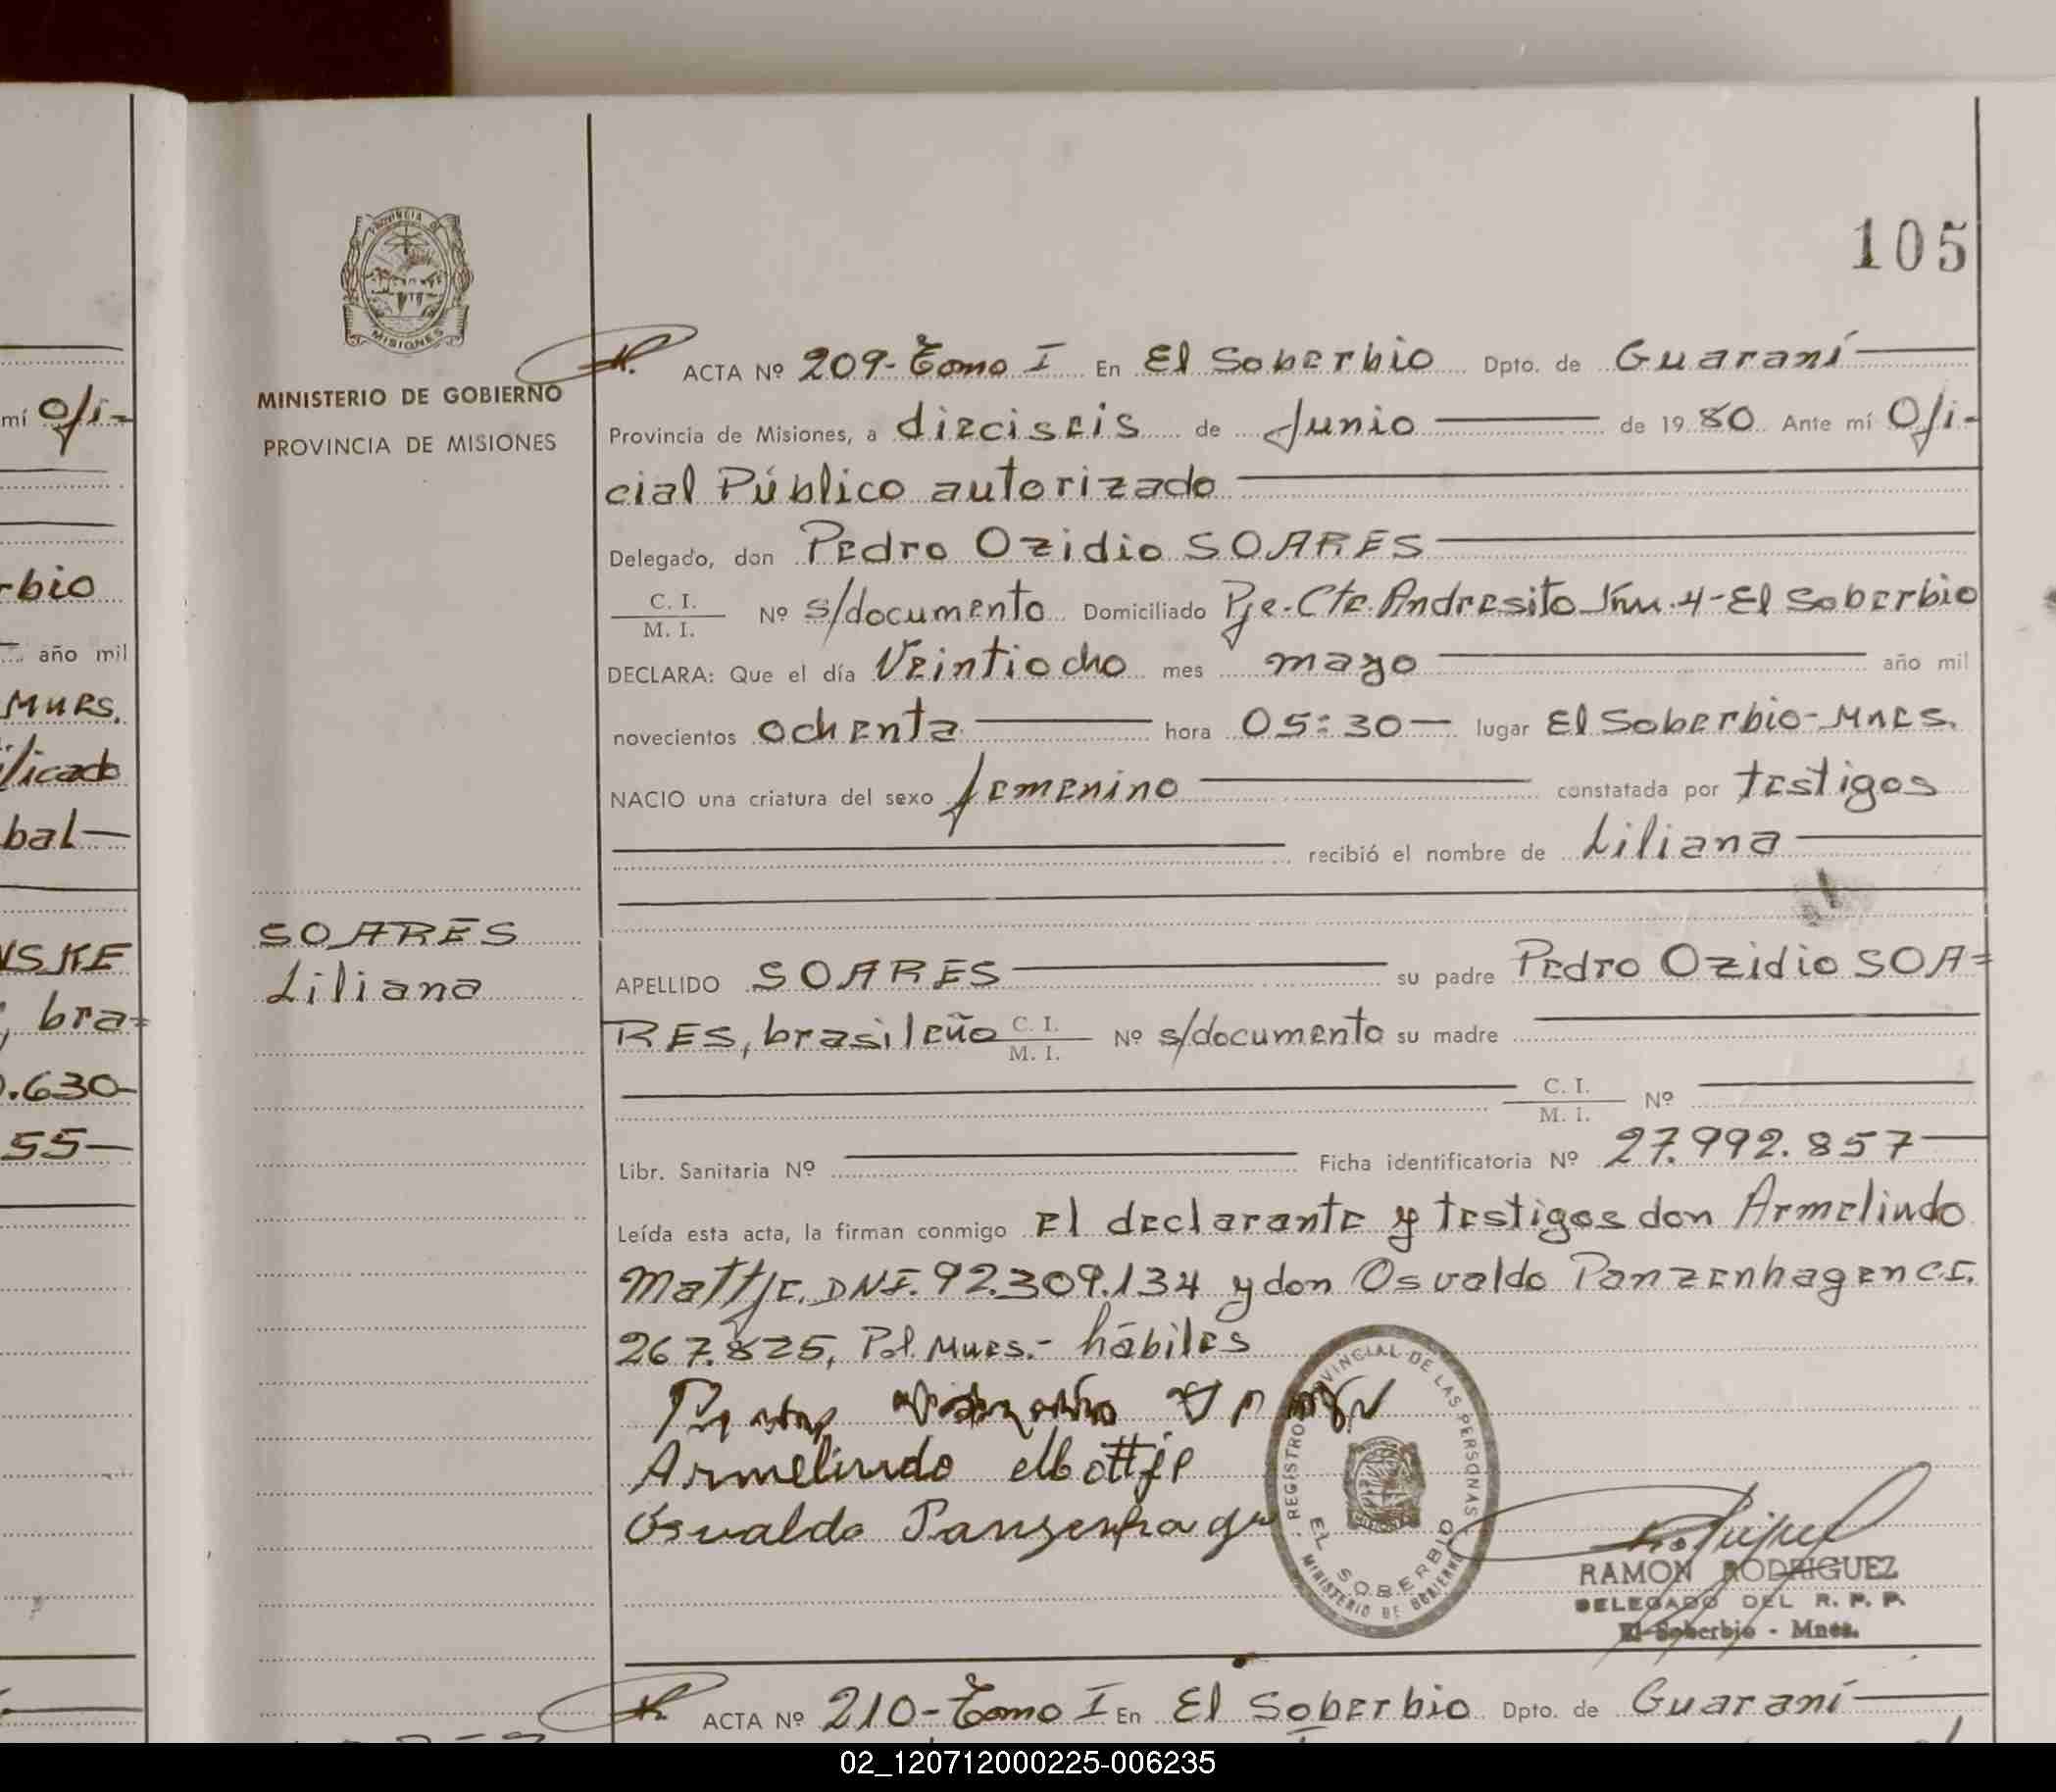 105
PROVINCIA
MISIONES
MINISTERIO DE GOBIERNO
PROVINCIA DE MISIONES
mí Ofi-
rbio
año mil
Mnes.
ificado
bal
NSKE
, bra=
.630-
55-
SOARES
Liliana
ACTA Nº 209-Tomo I En El Soberbio Dpto. de Guaraní
Provincia de Misiones, a dieciseis de Junio de 1980 Ante mí Ofi-
cial Público autorizado
Delegado, don Pedro Ozidio SOARES
C. I.
M. I. Nº s/documento Domiciliado Pje.Cte.Andresito Km.4-El Soberbio
DECLARA: Que el día Veintiocho mes mayo año mil
novecientos ochenta hora 05:30 lugar El Soberbio-Mnes.
NACIO una criatura del sexo femenino constatada por testigos
recibió el nombre de Liliana
APELLIDO SOARES su padre Pedro Ozidio SOA=
RES, brasileño C. I. M. I. Nº s/documento su madre
C. I.
M. I. Nº
Libr. Sanitaria Nº Ficha identificatoria Nº 27.992.857
Leída esta acta, la firman conmigo El declarante y testigos don Armelindo
Mattje. DNI. 92.309.134 y don Osvaldo Panzenhagen C.I.
267.825, Pol. Mnes.- hábiles
Armelindo Mattje
Osvaldo Panzenhagen
REGISTRO PROVINCIAL DE LAS PERSONAS
EL SOBERBIO
MINISTERIO DE GOBIERNO
RAMON RODRIGUEZ
DELEGADO DEL R. P. P.
El Soberbio - Mnes.
ACTA Nº 210-Tomo I En El Soberbio Dpto. de Guaraní
02_120712000225-006235